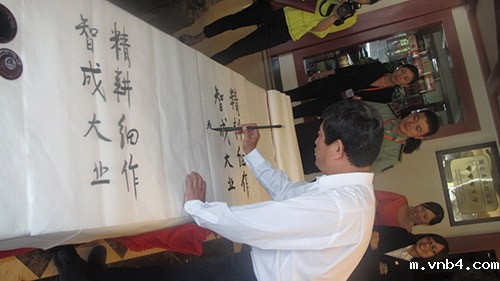 精耕细作
智成大业
精耕细作
智成大业
m.vnb4.com